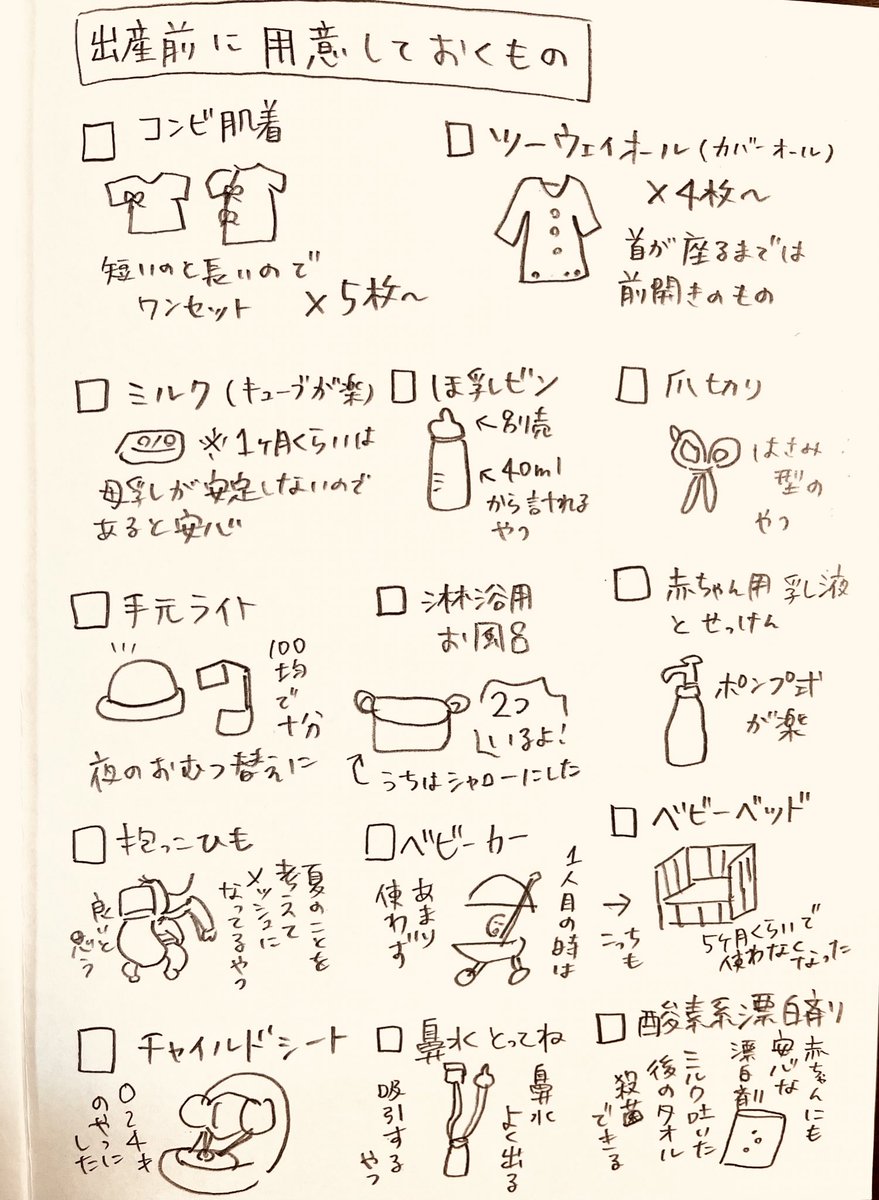 出産前に用意しておくもの
コンビ肌着
短いのと長いので
ワンセット ×5枚〜
ツーウェイオール(カバーオール)
×4枚〜
首が座るまでは
前開きのもの
ミルク(キューブが楽)
※1ヶ月くらいは
母乳が安定しないので
あると安心
ほ乳ビン
←別売
←40ml
から計れる
やつ
爪切り
はさみ
型の
やつ
手元ライト
100
均で
十分
夜のおむつ替えに
淋浴用
お風呂
2つ
いるよ!
うちはシャローにした
赤ちゃん用乳液
とせっけん
ポンプ式
が楽
抱っこひも
夏のことを
考えて
メッシュに
なってるやつ
良いと
思う
ベビーカー
1人目の時は
あまり
使わず
ベビーベッド
→
こっちも
5ヶ月くらいで
使わなく
なった
チャイルドシート
024キ
のやつに
した
鼻水とってね
鼻水
よく出る
吸引する
やつ
酸素系漂白剤
赤ちゃんにも
安心な
漂白剤
ミルク吐いた
後のタオル
殺菌
できる